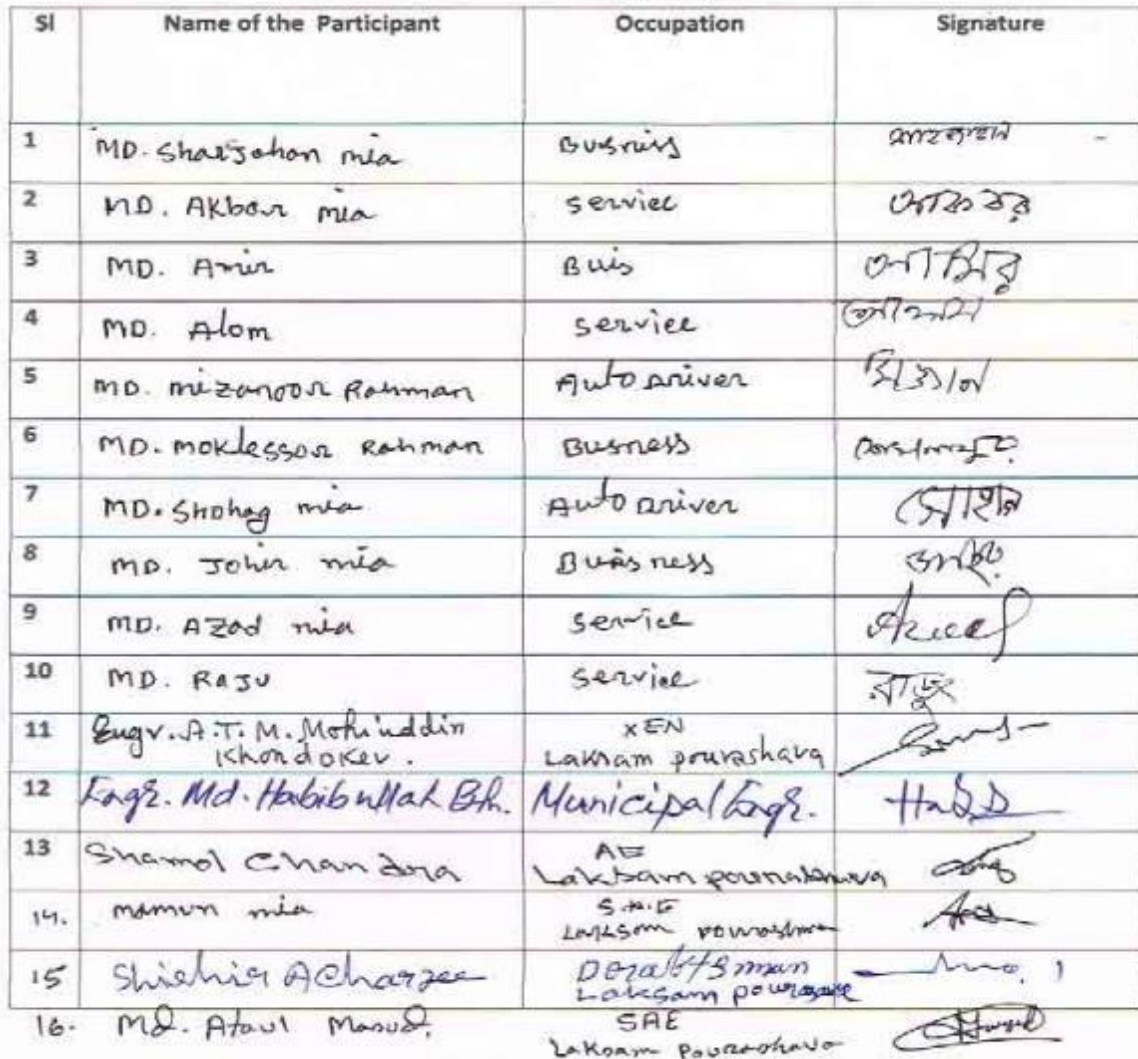 Sl Name of the Participant Occupation Signature
1 MD. Sharjahan mia Busniss শাহজাহান
2 MD. AKbar mia service আকবর
3 MD. Amir Buis আমির
4 MD. Alom service আলম
5 MD. mizanoor Rahman Auto Driver মিজান
6 MD. moklessor Rahman Busness
7 MD. Shohag mia Auto Driver সোহাগ
8 MD. Johir mia Buisness জহির
9 MD. AZad mia service Azad
10 MD. RaJu service রাজু
11 Engr. A.T.M. Mohiuddin XEN
Khondoker. Laksam pourashava
12 Engr. Md. Habibullah Bh. Municipal Engr. Habib
13 Shamol Chandra AE
Laksam pourashava
14. mamun mia S.A.E
Laksam pourashava
15 Shishir Acharzee
Laksam pourasave
16. Md. Ataul Masud. SAE
Laksam Pourashava